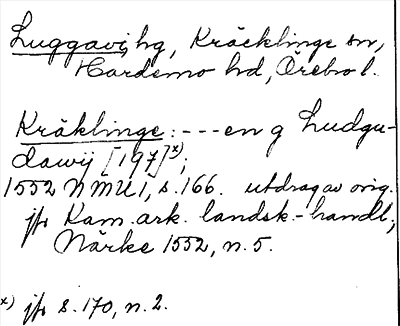 Luggavi, hg, Kräcklinge sn,
Hardemo hd, Örebro l.
Kräklinge : --- en g Ludgu-
dawij [197]x);
1552 NMU 1, s. 166. utdrag av orig.
jfr Kam. ark. landsk.-handl.,
Närke 1552, n. 5.
x) jfr s. 170, n. 2.